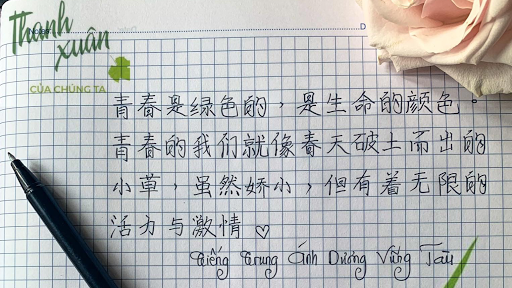 Thanh
xuân
CỦA CHÚNG TA
青春是绿色的，是生命的颜色。
青春的我们就像春天破土而出的
小草，虽然娇小，但有着无限的
活力与激情 ♡
Tiếng Trung Ánh Dương Vũng Tàu